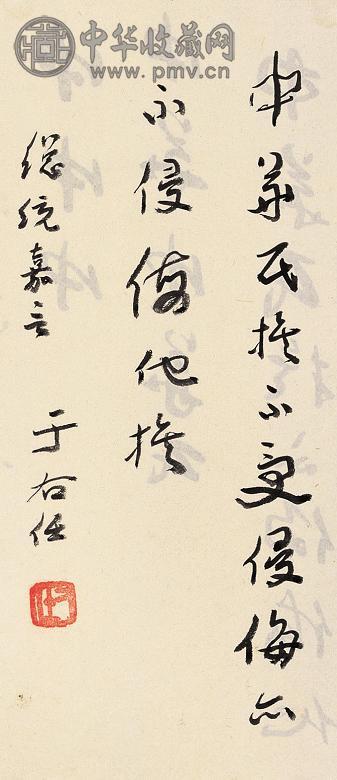 中华收藏网
www.pmv.cn
中華民族不受侵侮亦
不侵侮他族
總統嘉言 于右任